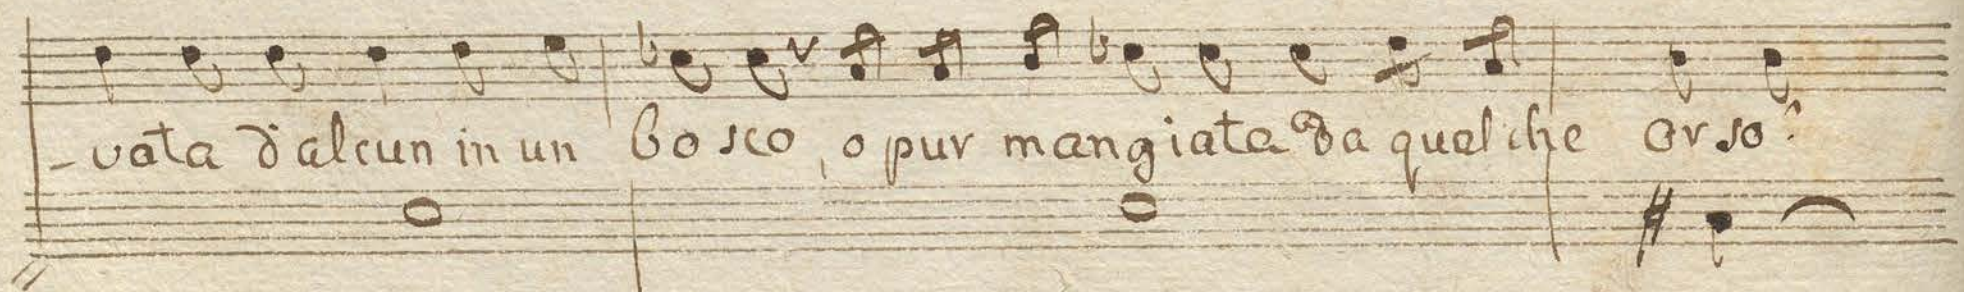 -vata d'alcun in un bosco, o pur mangiata da qualche orso?